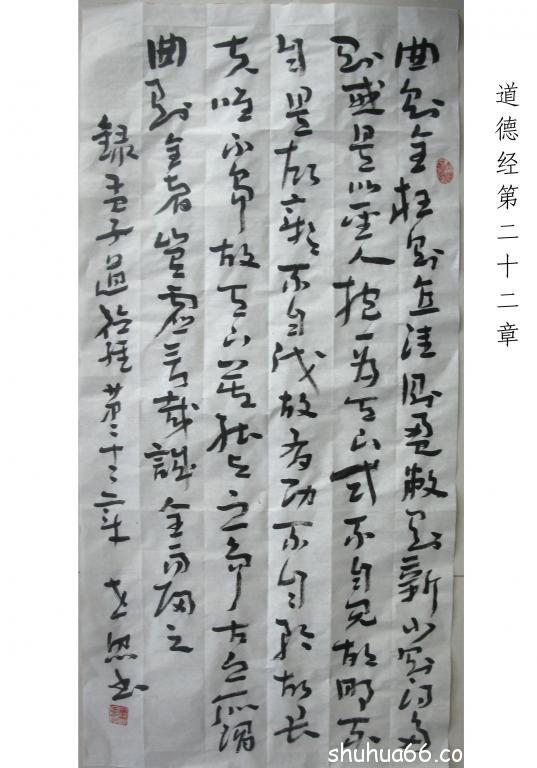 道德经第二十二章
曲则全枉则直洼则盈敝则新少则得多
则惑是以圣人抱一为天下式不自见故明不
自是故彰不自伐故有功不自矜故长
夫唯不争故天下莫能与之争古之所谓
曲则全者豈虚言哉誠全而归之
録老子道德经第二十二章 书
shuhua66.co